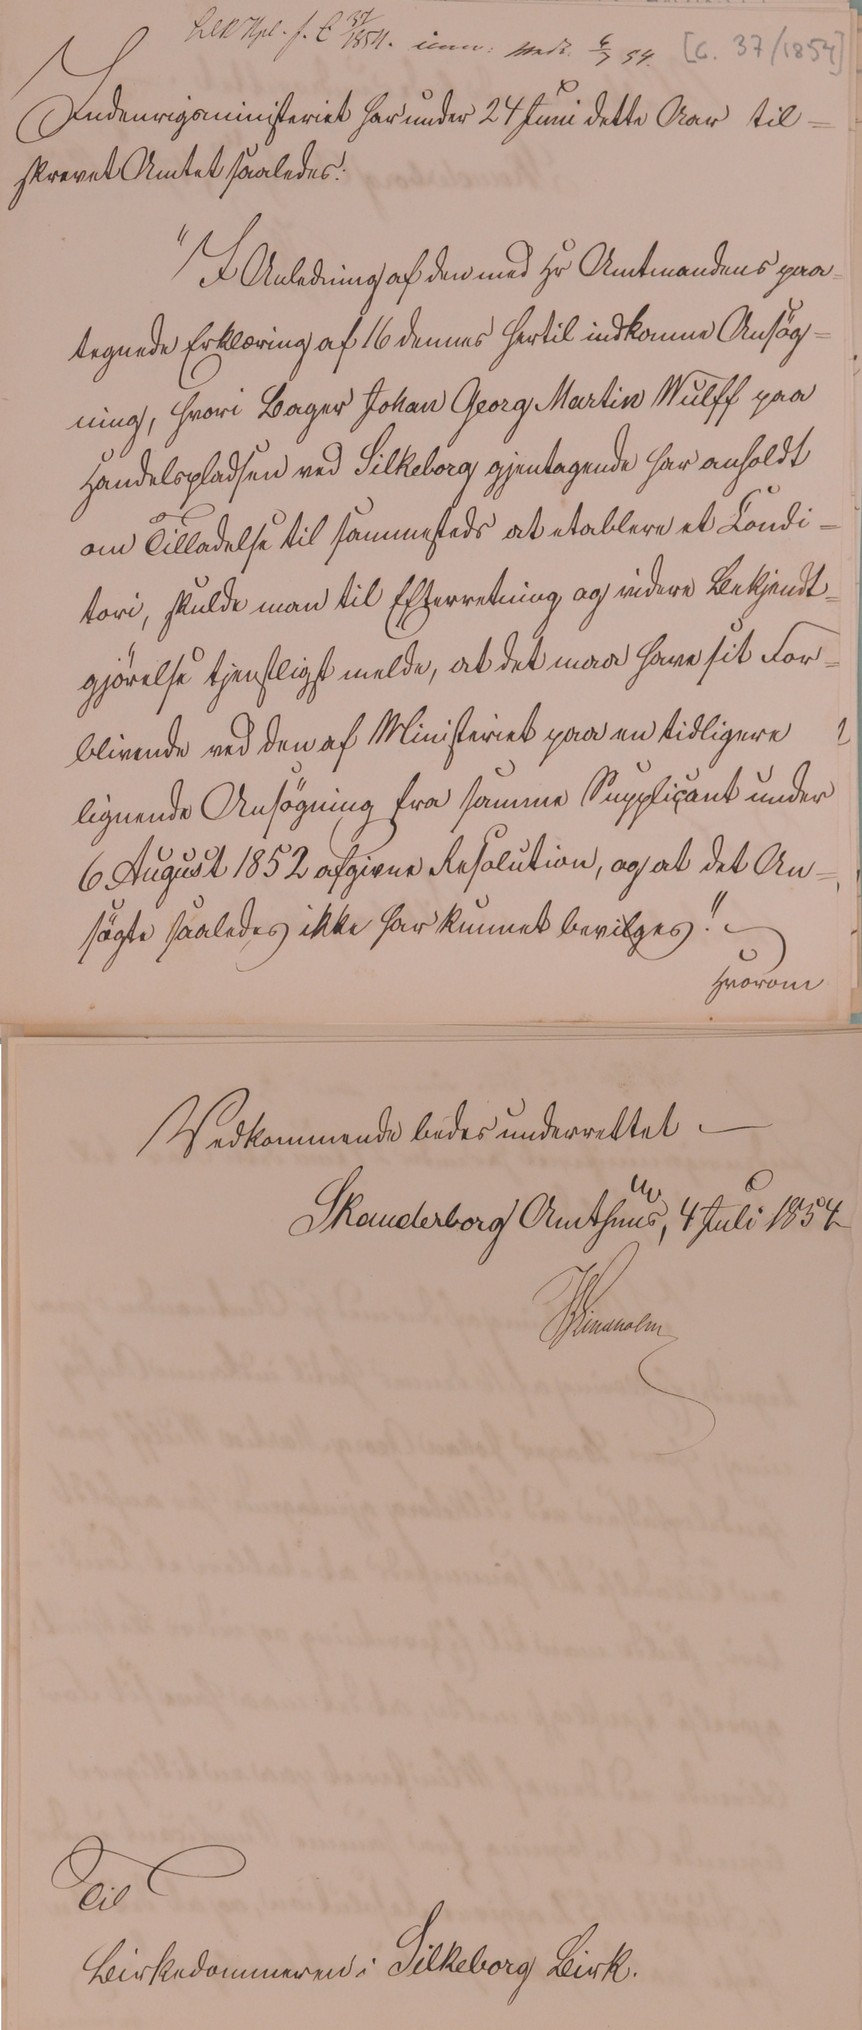 37/1854. 6/7 54. [C. 37/1854]
Indenrigsministeriet har under 24 Juni dette Aar til-
skrevet Amtet saaledes:
"I Anledning af den med Hr Amtmandens paa-
tegnede Erklæring af 16 dennes hertil indkomne Ansøg-
ning, hvori Bager Johan Georg Martin Wulff paa
Handelspladsen ved Silkeborg gjentagende har anholdt
om Tilladelse til sammesteds at etablere et Condi-
tori, skulde man til Efterretning og videre Bekjendt-
gjørelse tjenstligst melde, at det maa have sit For-
blivende ved den af Ministeriet paa en tidligere
lignende Ansøgning fra samme Supplicant under
6 August 1852 afgivne Resolution, og at det An-
søgte saaledes ikke har kunnet bevilges."
Hvorom
Vedkommende bedes underrettet
Skanderborg Amthuus, 4 Juli 1854
Til
Birkedommeren i Silkeborg Birk.